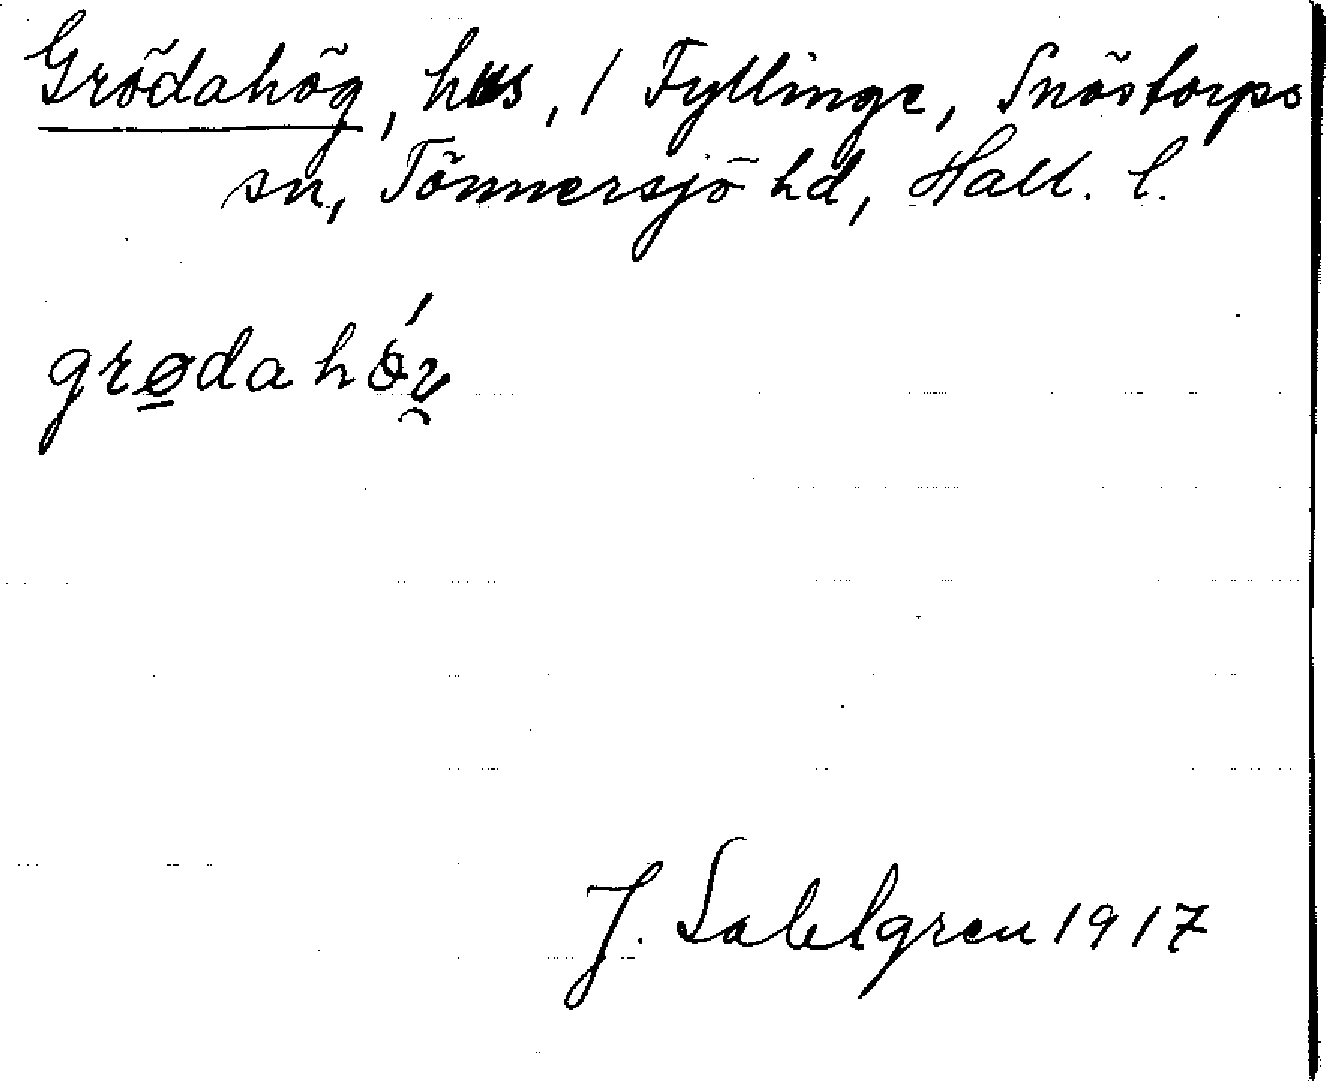 Grödahög, hus, / Fyllinge, Snöstorps
sn, Tönnersjö hd, Hall. l.
grødahǿv̯
J. Sahlgren 1917